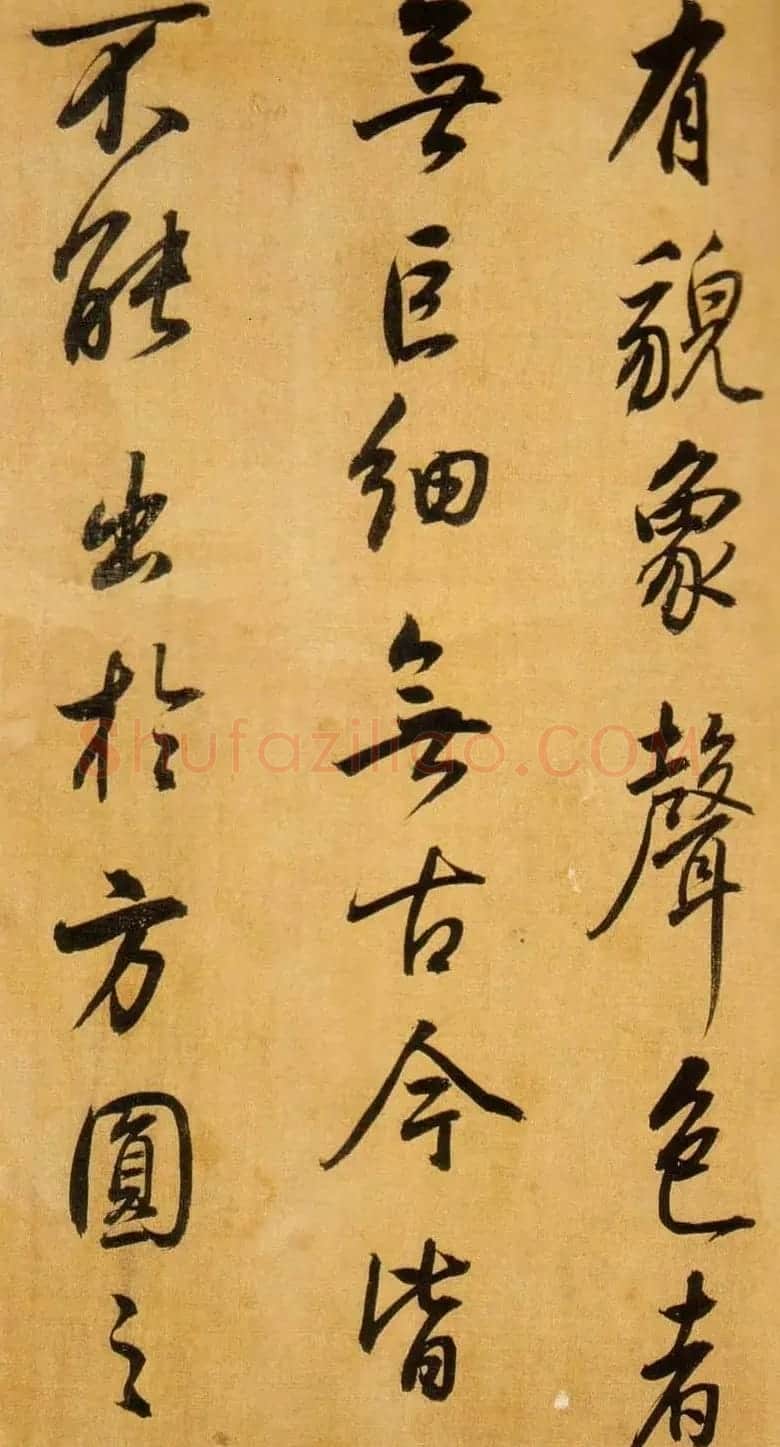 有貌象聲色者
無巨細無古今皆
不能出於方圓之
Shufaziliao.COM